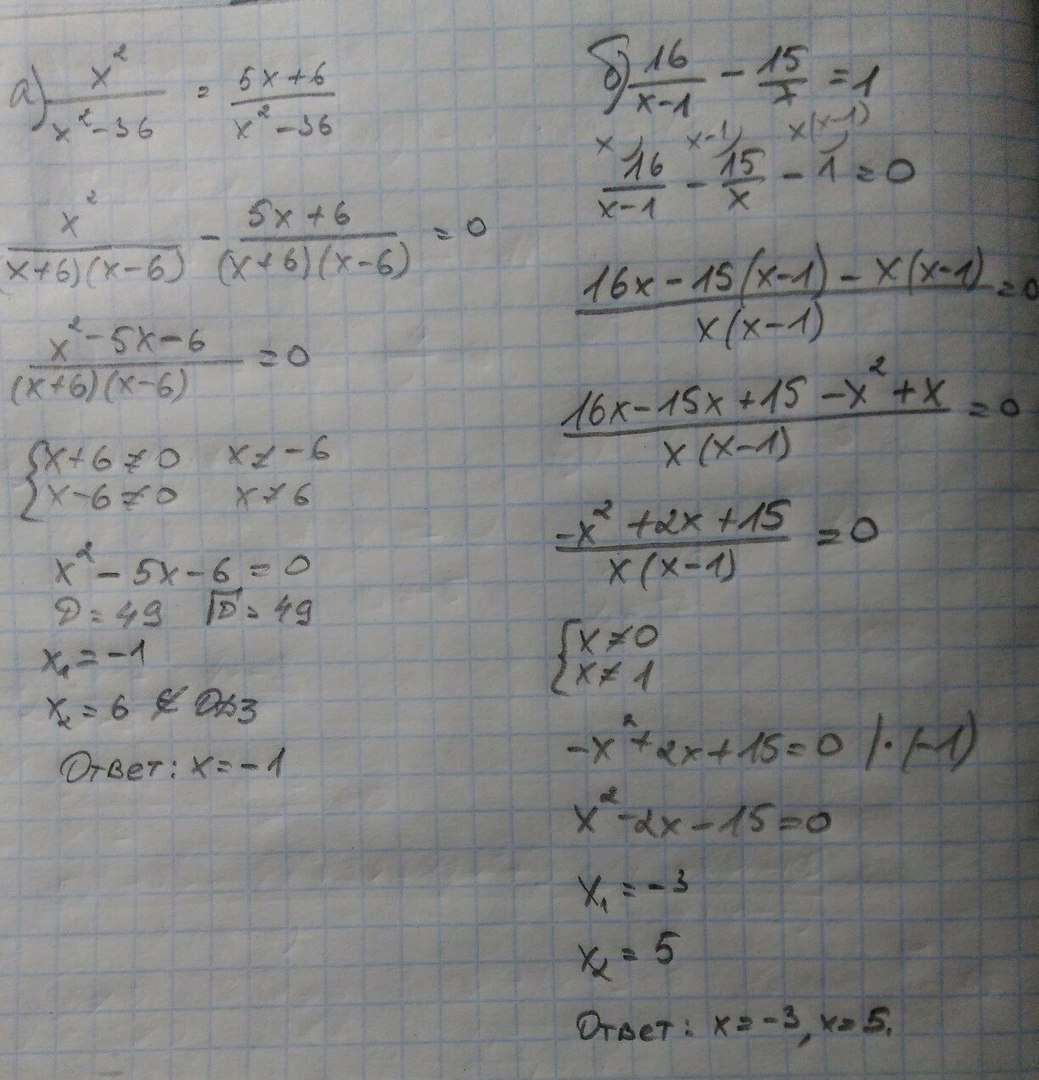 а) x²/(x²-36) = (5x+6)/(x²-36)
x²/((x+6)(x-6)) - (5x+6)/((x+6)(x-6)) = 0
(x²-5x-6)/((x+6)(x-6)) = 0
{x+6≠0 x≠-6
{x-6≠0 x≠6
x²-5x-6=0
D=49 √D=49
x₁=-1
x₂=6 ∉ ОДЗ
Ответ: x=-1
б) 16/(x-1) - 15/x = 1
x) x-1) x(x-1)
16/(x-1) - 15/x - 1 = 0
(16x-15(x-1)-x(x-1))/(x(x-1)) = 0
(16x-15x+15-x²+x)/(x(x-1)) = 0
(-x²+2x+15)/(x(x-1)) = 0
{x≠0
{x≠1
-x²+2x+15=0 |·(-1)
x²-2x-15=0
x₁=-3
x₂=5
Ответ: x=-3, x=5.